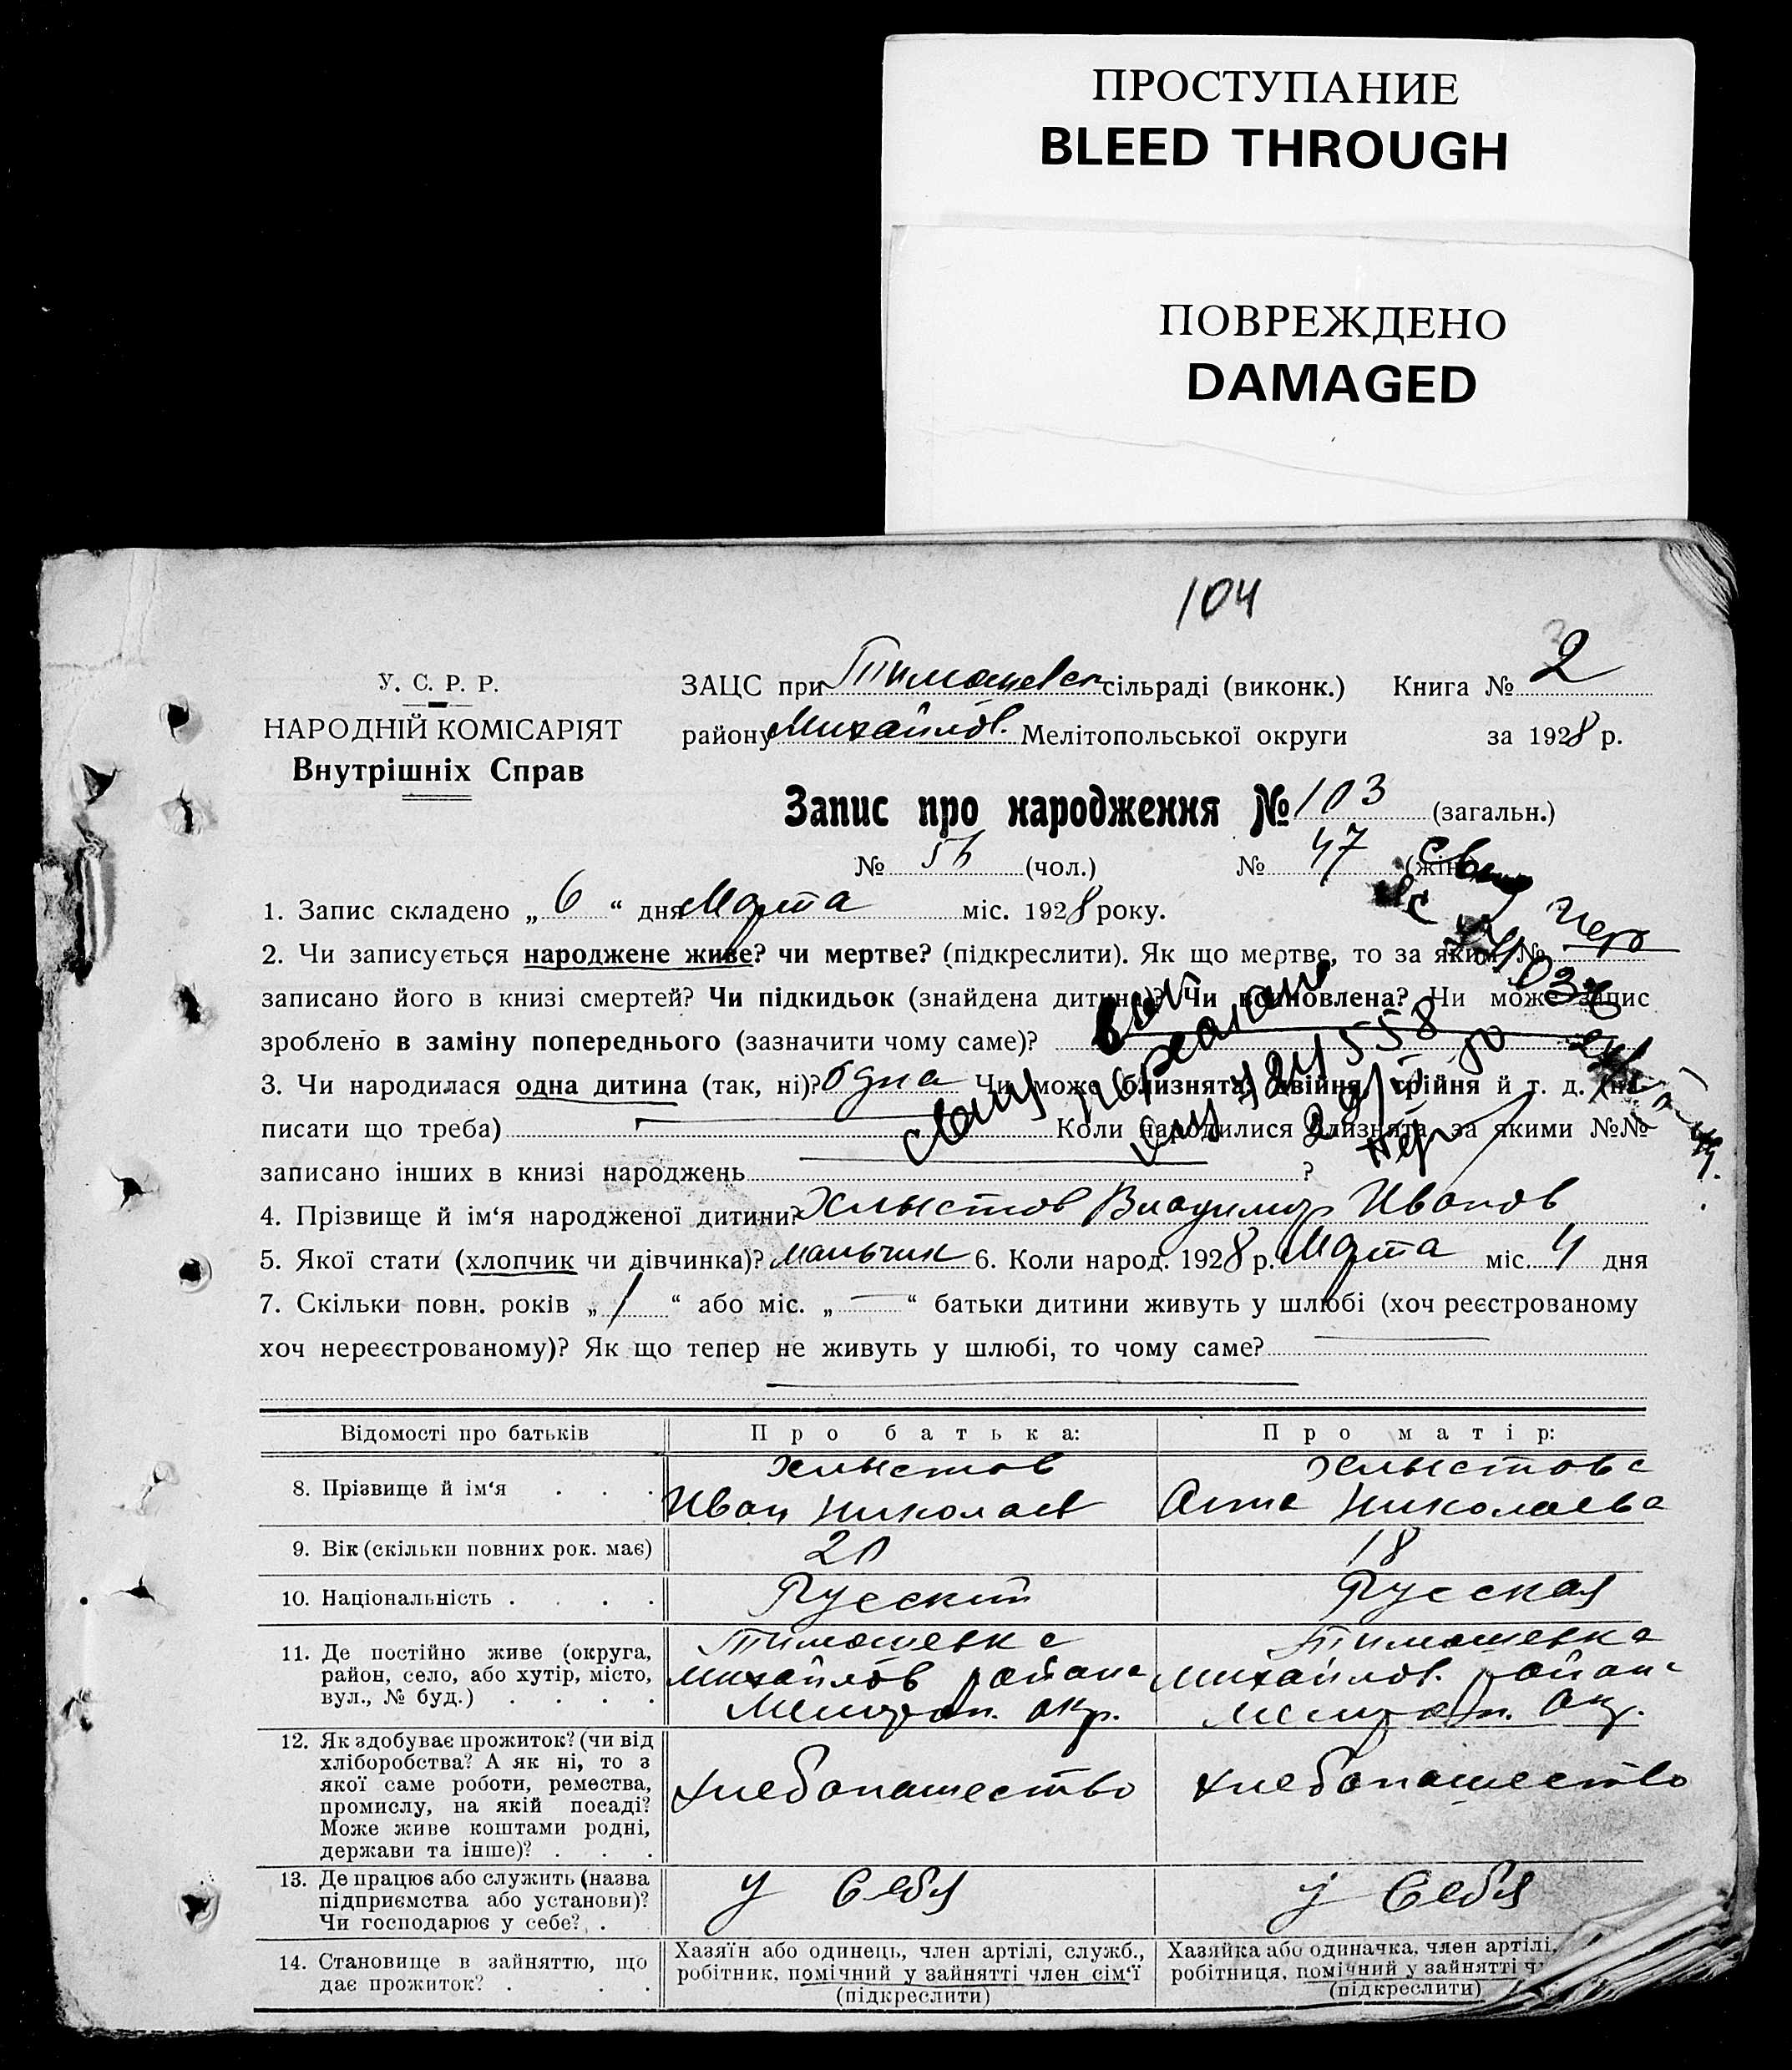 ПРОСТУПАНИЕ
BLEED THROUGH
ПОВРЕЖДЕНО
DAMAGED
104
У. С. Р. Р.
НАРОДНІЙ КОМІСАРІЯТ
Внутрішніх Справ
ЗАЦС при Тимошевск сільраді (виконк.) Книга № 2
району Михайлов. Мелітопольської округи за 1928 р.
Запис про народження № 103 (загальн.)
№ (чол.) № 47 (жін.)
1. Запис складено „ 6 “ дня Марта міс. 1928 року.
2. Чи записується народжене живе? чи мертве? (підкреслити). Як що мертве, то за яким №
записано його в книзі смертей? Чи підкидьок (знайдена дитина)? Чи всиновлена? Чи може запис
зроблено в заміну попереднього (зазначити чому саме)?
3. Чи народилася одна дитина (так, ні)? одна Чи може близнята, двійня, трійня й т. д. (на-
писати що треба) Коли народилися близнята, за якими №№
записано інших в книзі народжень ?
4. Прізвище й ім‘я народженої дитини? Хлыстов Владимир Иванов
5. Якої стати (хлопчик чи дівчинка)? мальчик 6. Коли народ. 1928 р. Марта міс. 4 дня
7. Скільки повн. років „ 1 “ або міс. „ — “ батьки дитини живуть у шлюбі (хоч реєстрованому
хоч нереєстрованому)? Як що тепер не живуть у шлюбі, то чому саме?
Відомості про батьків Про батька: Про матір:
8. Прізвище й ім‘я Хлыстов Иван Николаев Хлыстова Анна Николаева
9. Вік (скільки повних рок. має) 20 18
10. Національність Русский Русская
11. Де постійно живе (округа,
район, село, або хутір, місто,
вул., № буд.)
Тимошевка
Михайлов района
Мелитоп. окр.
Тимошевка
Михайлов. района
Мелитоп. окр.
12. Як здобуває прожиток? (чи від
хліборобства? А як ні, то з
якої саме роботи, ремества,
промислу, на якій посаді?
Може живе коштами родні,
держави та інше)?
хлебопашество хлебопашество
13. Де працює або служить (назва
підприємства або установи)?
Чи господарює у себе?
у себя у себя
14. Становище в зайняттю, що
дає прожиток?
Хазяїн або одинець, член артілі, служб.,
робітник, помічний у зайнятті член сім‘ї
(підкреслити)
Хазяйка або одиначка, член артілі,
робітниця, помічний у зайнятті
(підкреслити)